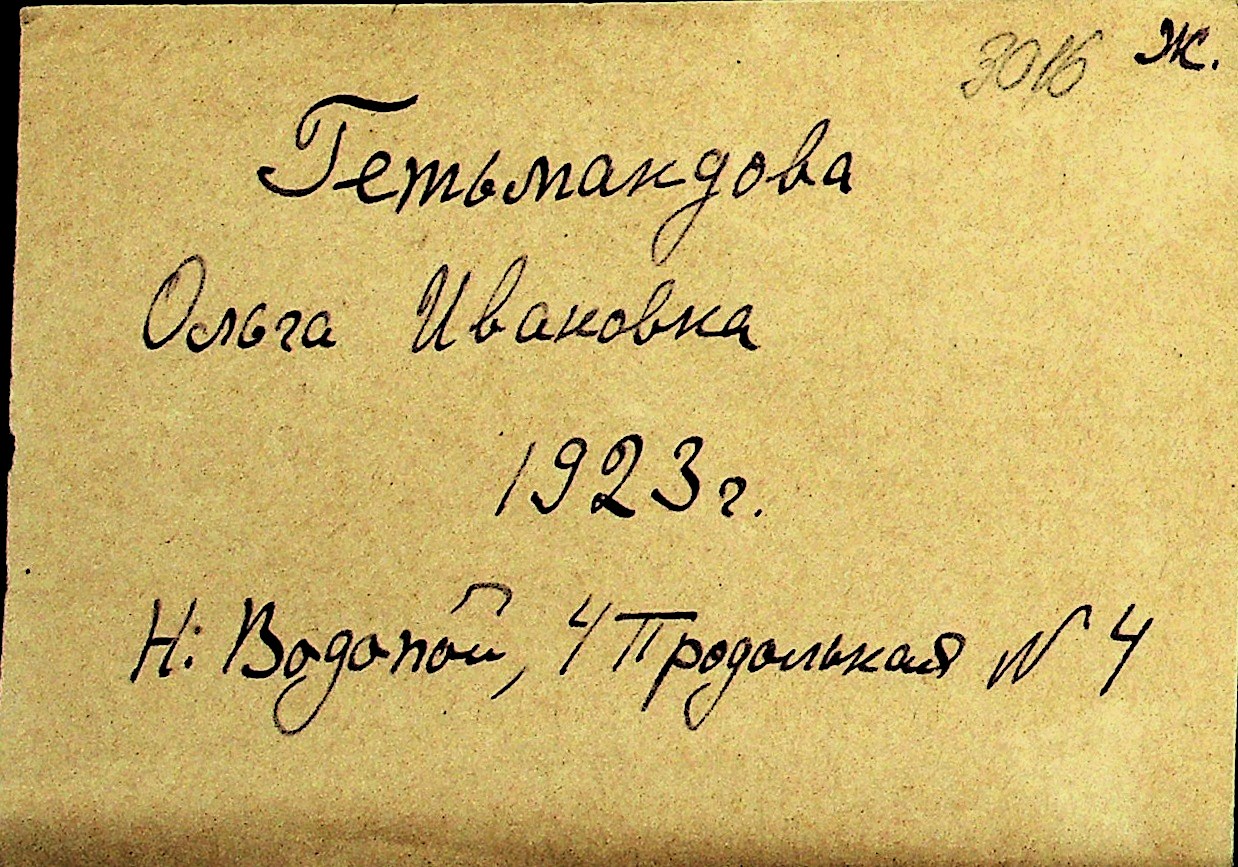 3016 Ж.
Гетьмандова
Ольга Ивановна
1923 г.
Н: Водопой, 4 Продольная № 4